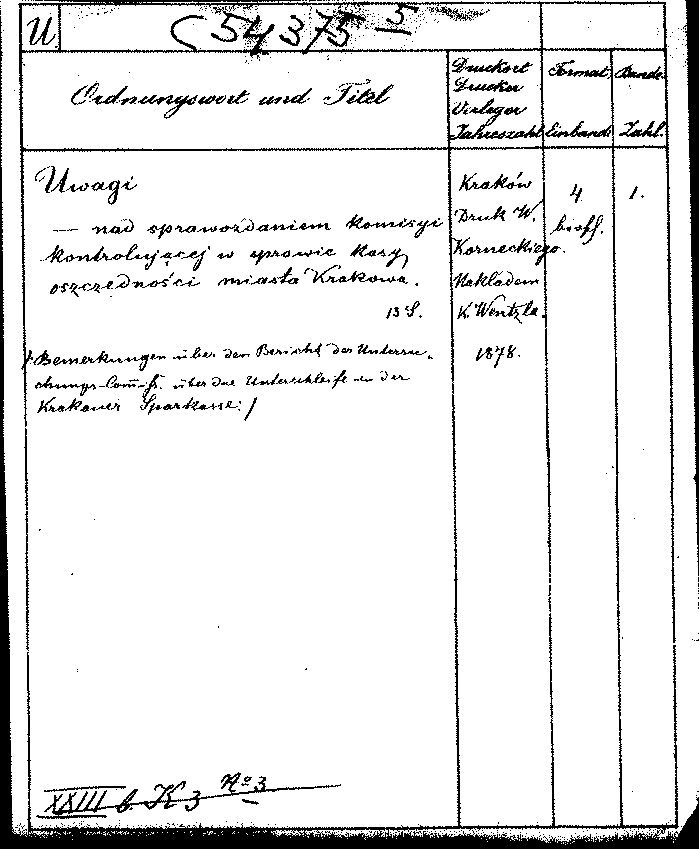 U
C 54375 5
Ordnungswort und Titel
Druckort
Drucker
Verleger
Jahreszahl
Format
Einband
Bände-
Zahl.
Uwagi
— nad sprawozdaniem komisyi
kontrolującej w sprawie kasy
oszczędności miasta Krakowa.
13 S.
/: Bemerkungen über den Bericht der Untersu-
chungs-Com̅iss. über die Unterschleife in der
Krakauer Sparkasse :/
Kraków
Druk W.
Korneckiego.
Nakladem
K. Wentzla.
1878.
4
brosch.
1.
XXIII b. K 3 No 3